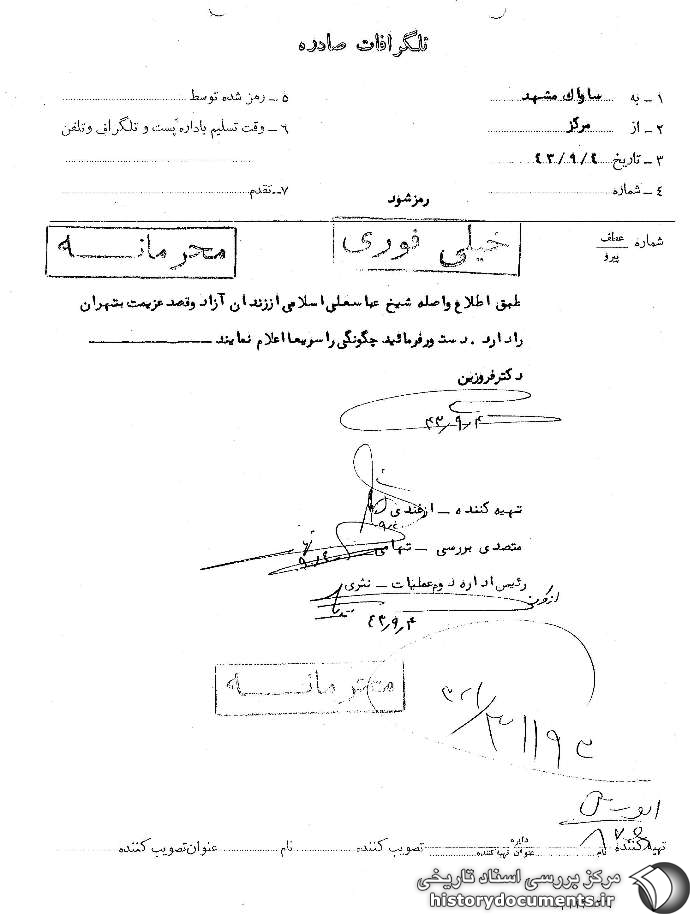 تلگرافات صادره
۱ ـ به ساواك مشهد
۲ ـ از مركز
۳ ـ تاریخ ۴۳/۹/۴
۴ ـ شماره
۵ ـ رمز شده توسط
۶ ـ وقت تسلیم باداره پست و تلگراف وتلفن
۷ـ تقدم
رمزشود
شماره عطف پیرو
خیلی فوری
محرمانه
طبق اطلاع واصله شیخ عباسعلی اسلامی از زندان آزاد وقصد عزیمت بتهران
رادارد . دستور فرمائید چگونگی را سریعا اعلام نمایند
دکتر فروزین
۴۳/۹/۴
تهیه کننده ـ ازغندی
۹/۴
متصدی بررسی ـ تهامی
۹/۴
رئیس اداره دوم عملیات ـ نثری
۴۳/۹/۴
محرمانه
تهیه کننده نام دایره عنوان تهیه کننده تصویب کننده نام عنوان تصویب کننده
مرکز بررسی اسناد تاریخی
historydocuments.ir